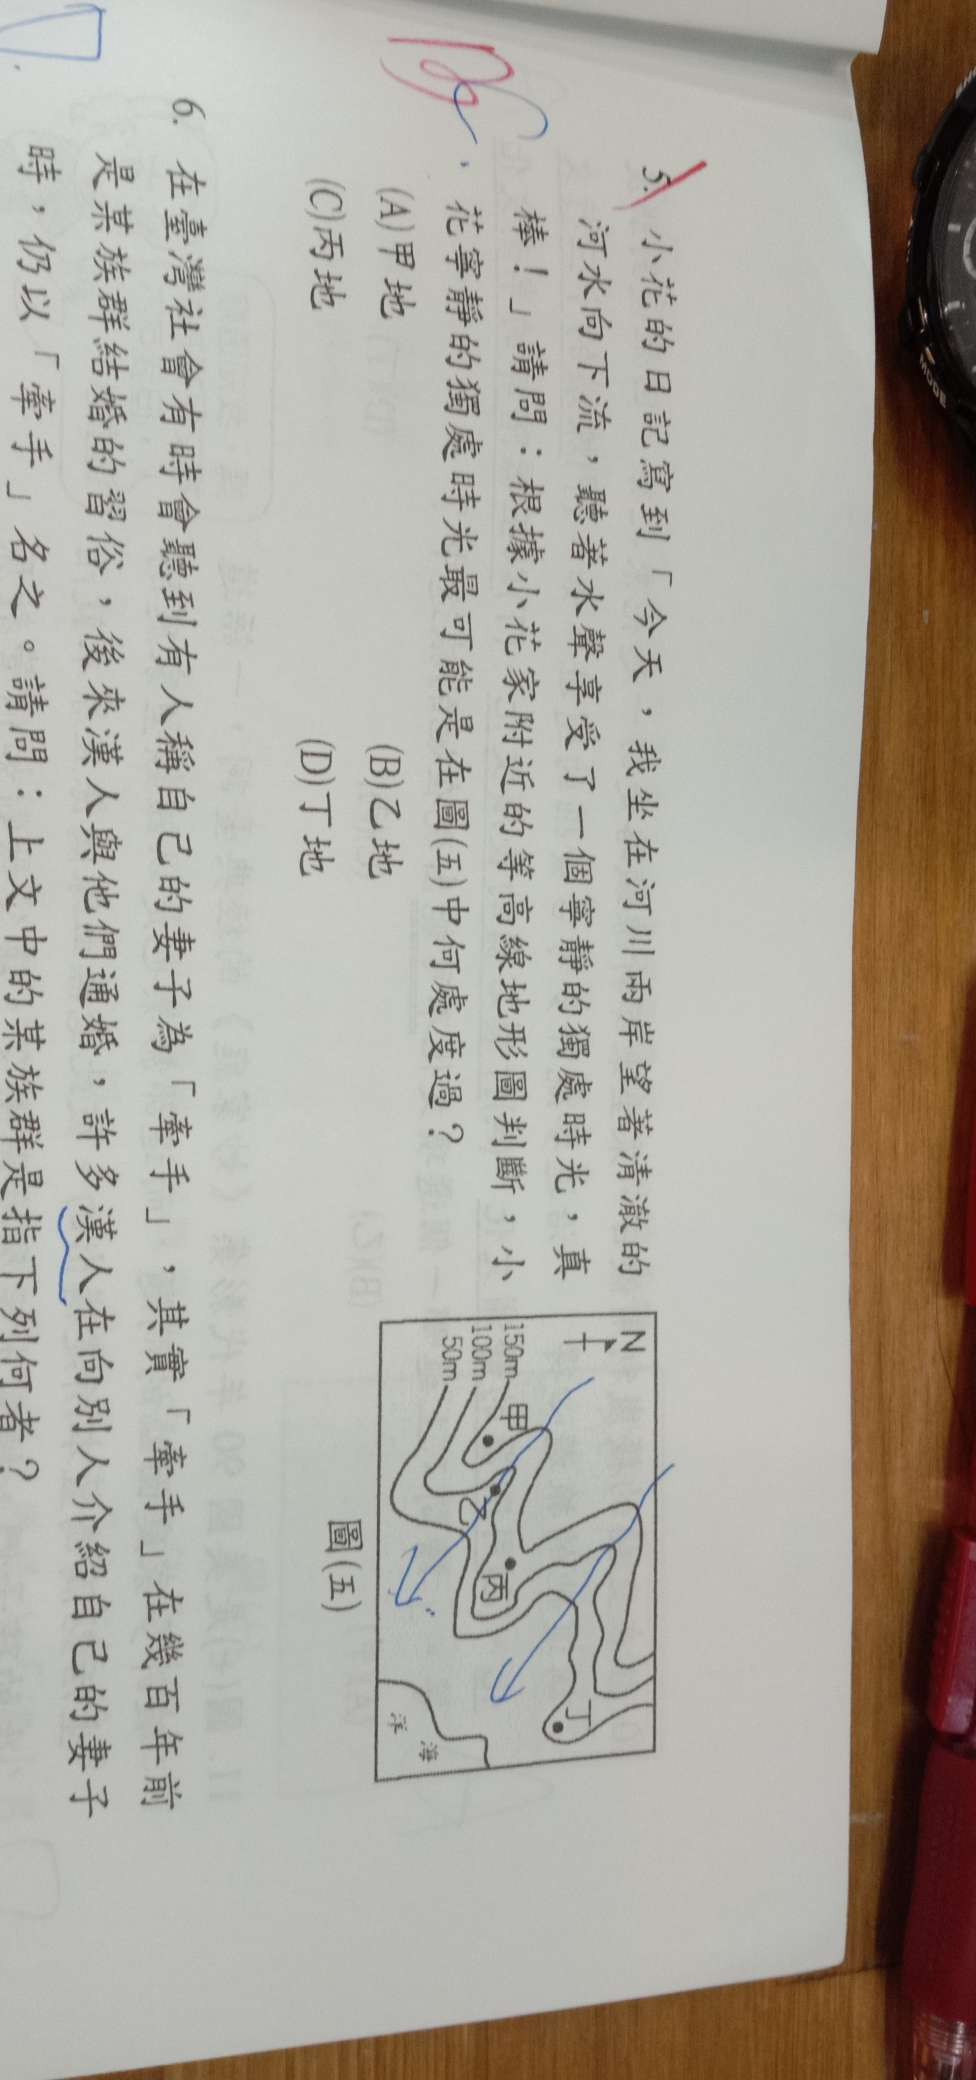 5. 小花的日記寫到「今天，我坐在河川兩岸望著清澈的
河水向下流，聽著水聲享受了一個寧靜的獨處時光，真
棒！」請問：根據小花家附近的等高線地形圖判斷，小
花寧靜的獨處時光最可能是在圖(五)中何處度過？
(A)甲地 (B)乙地
(C)丙地 (D)丁地
N
150m
100m
50m
甲
乙
丙
丁
海
洋
圖(五)
6. 在臺灣社會有時會聽到有人稱自己的妻子為「牽手」，其實「牽手」在幾百年前
是某族群結婚的習俗，後來漢人與他們通婚，許多漢人在向別人介紹自己的妻子
時，仍以「牽手」名之。請問：上文中的某族群是指下列何者？
MODE